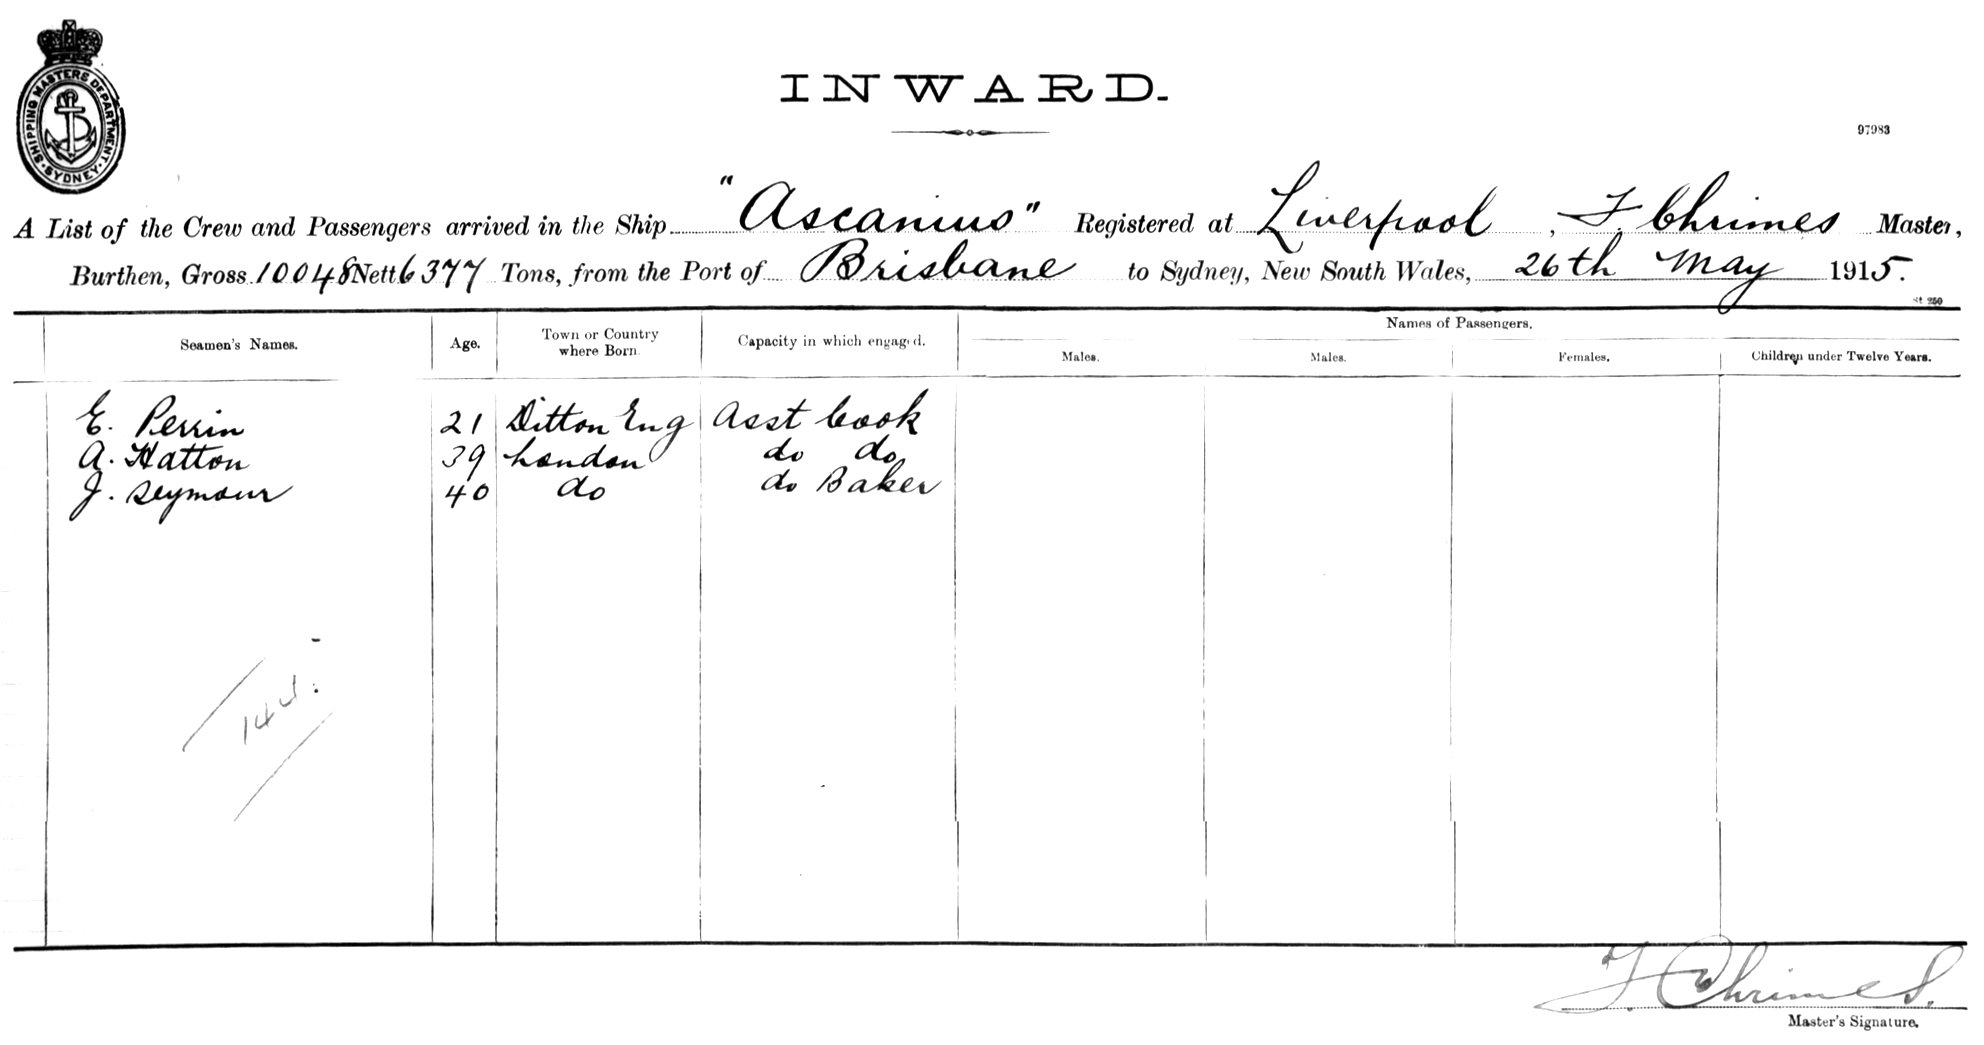 SHIPPING MASTERS DEPARTMENT
SYDNEY
INWARD.
97983
A List of the Crew and Passengers arrived in the Ship "Ascanius" Registered at Liverpool, F. Chrimes Master,
Burthen, Gross 10048 Nett 6377 Tons, from the Port of Brisbane to Sydney, New South Wales, 26th May 1915.
St 250
Seamen's Names. Age. Town or Country where Born. Capacity in which engaged. Names of Passengers.
Males. Males. Females. Children under Twelve Years.
E. Perrin 21 Ditton Eng Asst Cook
A. Hatton 39 London do do
J. Seymour 40 do do Baker
F Chrimes.
Master's Signature.